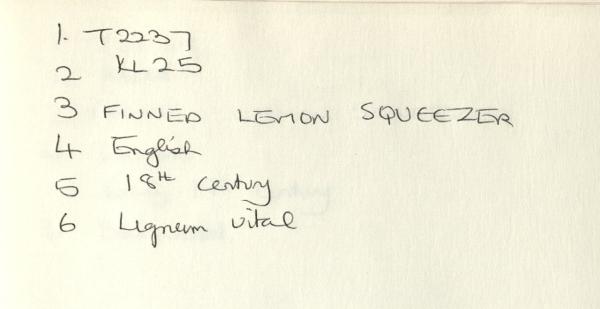 1. T2237
2 KL25
3 FINNED LEMON SQUEEZER
4 English
5 18th century
6 Lignum vitae